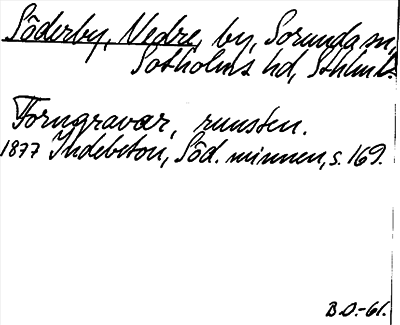 Söderby, Nedre, by, Sorunda sn,
Sotholms hd, Sthlms l.
Forngravar, runsten.
1877 Indebetou, Söd. minnen, s. 169.
B.O.-61.